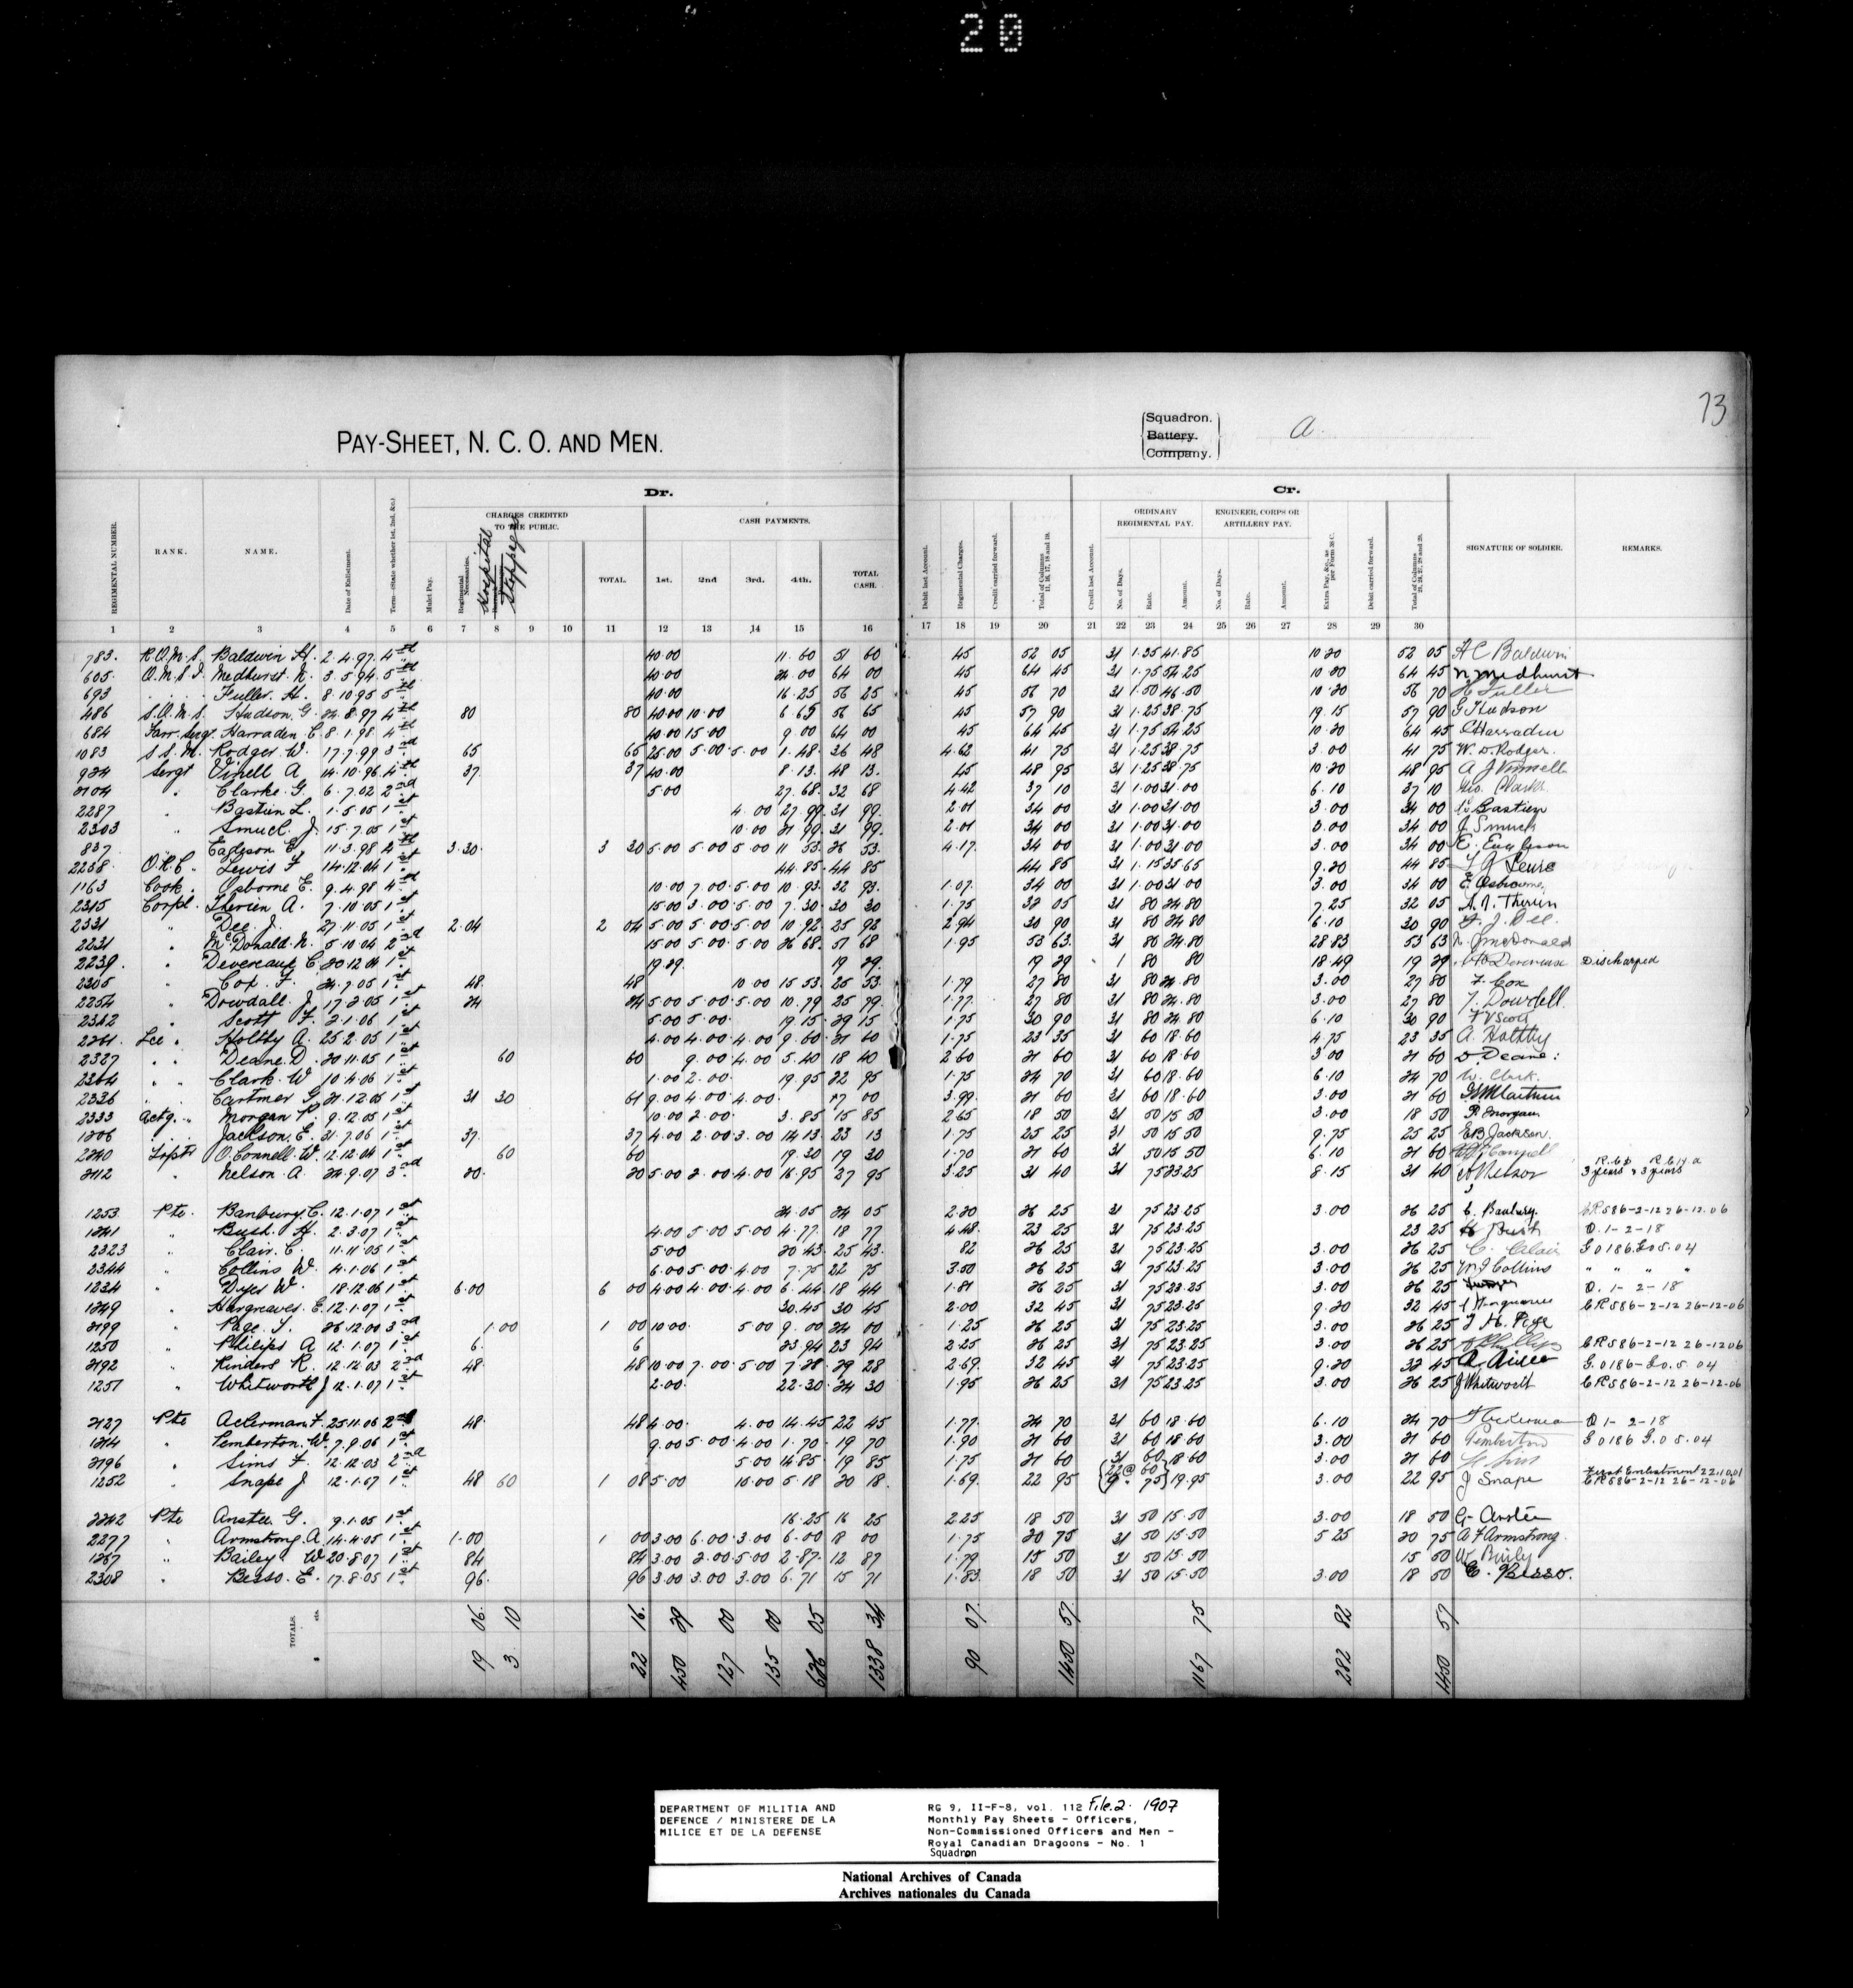 20
73
PAY-SHEET, N. C. O. AND MEN.
Squadron.
Battery.
Company.
a
Dr.
Cr.
CHARGES CREDITED TO THE PUBLIC.
CASH PAYMENTS.
ORDINARY REGIMENTAL PAY.
ENGINEER, CORPS OR ARTILLERY PAY.
REGIMENTAL NUMBER. RANK. NAME. Date of Enlistment. Term—(State whether 1st, 2nd, &c.) Mulct Pay. Regimental Necessaries. Hospital Stoppages TOTAL. 1st. 2nd 3rd. 4th. TOTAL CASH. Debit last Account. Regimental Charges. Credit carried forward. Total of Columns 11, 16, 17, 18 and 19. Credit last Account. No. of Days. Rate. Amount. No. of Days. Rate. Amount. Extra Pay, &c., as per Form 36 C. Debit carried forward. Total of Columns SIGNATURE OF SOLDIER. REMARKS.
1 2 3 4 5 6 7 8 9 10 11 12 13 14 15 16 17 18 19 20 21 22 23 24 25 26 27 28 29 30
783. R.Q.M.S. Baldwin H. 2.4.97. 4th 40.00 11.60 51 60 45 52 05 31 1.35 41.85 10 20 52 05 H C Baldwin
605. Q.M.S.I. Medhurst. N. 3.5.94. 5th 40.00 24 00 64 00 45 64 45 31 1.75 54.25 10 20 64 45 N Medhurst
693 Fuller. H. 8.10.95 5th 40.00 16.25 56 25 45 56 70 31 1.50 46.50 10.20 56 70 H Fuller
486 S.Q.M.S. Hudson. G. 24.8.97 4th 80 80 40.00 10.00 6.65 56 65 45 57 90 31 1.25 38.75 19.15 57 90 G Hudson
684 Farr. Sergt. Harraden E. 8.1.98 4th 40.00 15.00 9 00 64 00 45 64 45 31 1.75 54.25 10.20 64 45 E Harraden
1083 S.S.M. Rodger W. 17.7.99 3rd 65 65 25.00 5.00 5.00 1.48 36 48 4.62 41 75 31 1.25 38.75 3.00 41 75 W. D Rodger.
924 Sergt Vinell A 14.10.96 4th 37 37 40.00 8.13. 48 13. 45 48 95 31 1.25 38.75 10.20 48 95
2104 " Clarke. G. 6.7.02 2nd 5.00 27.68. 32 68 4.42 37 10 31 1.00 31.00 6.10 37 10 Geo. Clarke
2287 " Bastien L. 1.5.05 1st 4.00 27.99. 31 99. 2.01 34 00 31 1.00 31.00 3.00 34 00 L Bastien
2303 " Smuck. J. 15.7.05 1st 10.00 21 99. 31 99. 2.01 34 00 31 1.00 31.00 3.00 34 00 J Smuck
837 Eagleson E. 11.3.98 4th 3.30. 3 30 5.00 5.00 5.00 11 53. 26 53. 4.17. 34 00 31 1.00 31.00 3.00 34 00 E. Eagleson
2238. O.R.C. Lewis F 14.12.04 1st 44.85 44 85 44 85 31 1.15 35 65 9.20 44 85
1163 Cook. Osborne E. 9.4.98 4th 10.00 7.00 5.00 10.93. 32 93. 1.07. 34 00 31 1.00 31.00 3.00 34 00 E Osborne.
2315 Corpl. Therien A. 7.10.05 1st 15.00 3.00 5.00 7.30 30 30 1.75 32 05 31 80 24.80 7.25 32 05 A. Therien
2331 " Dee J. 27.11.05 1st 2.04 2 04 5.00 5.00 5.00 10.92 25 92 2.94 30 90 31 80 24.80 6.10 30 90 J. Dee
2231 " McDonald. N. 5.10.04 2nd 15.00 5.00 5.00 26.68. 51 68 1.95 53 63. 31 80 24.80 28 83 53 63 N. J McDonald
2239. " Devereaux C. 20.12.04 1st 19.29. 19 29. 19 29 1 80 80 18.49 19 29 Discharged
2305 " Cox. F. 24.7.05 1st 48. 48 10.00 15 53. 25 53. 1.79 27 80 31 80 24.80 3.00 27 80 F. Cox
2254 " Dowdall. J. 17.2.05 1st 24 24 5.00 5.00 5.00 10.79 25 79. 1.77. 27 80 31 80 24.80 3.00 27 80 J. Dowdell.
2342 " Scott F. 2.1.06 1st 5.00 5.00. 19.15. 29 15 1.75 30 90 31 80 24.80 6.10 30 90 F V Scott
2261. Lce. " Holtby A. 25.2.05 1st 4.00 4.00 4.00 9.60 21 60 1.75 23 35 31 60 18.60 4.75 23 35 A. Holtby
2327 " " Deane. D. 20.11.05 1st 60 60 9.00 4.00 5.40 18 40 2.60 21 60 31 60 18.60 3.00 21 60 D. Deane.
2364 " " Clark. W 10.4.06 1st 1.00 2.00. 19.95 22 95 1.75 24 70 31 60 18.60 6.10 24 70 W. Clark.
2336 " " Cartmer G. 21.12.05 1st 31 30 61 9.00 4.00 4.00. 17 00 3.99. 21 60 31 60 18.60 3.00 21 60
2333 Actg. " Morgan P. 9.12.05 1st 10.00 2.00. 3.85 15 85 2.65 18 50 31 50 15.50 3.00 18 50 P. Morgan
1206 Jackson. E. 31.7.06 1st 37. 37 4.00 2.00 3.00 14.13. 23 13 1.75 25 25 31 50 15 50 9.75 25 25 E B Jackson.
2240 O'Connell. W. 12.12.04 1st 60 60 19.30 19 30 1.70 21 60 31 50 15 50 6.10 21 60
2112 " Nelson. A. 24.9.07 3rd 20. 20 5.00 2.00 4.00 16.95 27 95 3.25 31 40 31 75 23.25 8.15 31 40 A Nelson 3 years & 3 years
1253 Pte. Banbury. C. 12.1.07 1st 24.05 24 05 2.20 26 25 31 75 23.25 3.00 26 25 C. Banbury. C.R.586-2-12 26-12.06
1241 " Bush. H. 2.3.07 1st 4.00 5.00 5.00 4.77. 18 77 4.48. 23 25 31 75 23.25 23 25 H Bush O. 1-2-18
2323 " Clair. C. 11.11.05 1st 5.00 20 43. 25 43. 82 26 25 31 75 23.25 3.00 26 25 C. Clair G 0186. G.o 5.04
2344 " Collins W. 4.1.06 1st 6.00 5.00 4.00 7.75 22 75 3.50 26 25 31 75 23.25 3.00 26 25 W. J Collins " " " "
1234 " Dyer W. 18.12.06 1st 6.00 6 00 4.00 4.00 4.00 6.44 18 44 1.81 26 25 31 75 23.25 3.00 26 25 O. 1-2-18
1249 " Hargreaves. E. 12.1.07 1st 30.45 30 45 2.00 32 45 31 75 23.25 9.20 32 45 C.R.586-2-12 26-12-06
2199 " Page. J. 26.12.00 3rd 1.00 1 00 10.00. 5.00 9.00 24 00 1.25 26 25 31 75 23.25 3.00 26 25 J. H. Page
1250 " Philips A 12.1.07 1st 6. 6 23.94 23 94 2.25 26 25 31 75 23.25 3.00 26 25 A Phillips C.R.586-2-12 26-12 06
2192 " Kinders R. 12.12.03 2nd 48. 48 10.00 7.00 5.00 7.28. 29 28 2.69. 32 45 31 75 23.25 9.20 32 45 G.0186-G.o.5.04
1251 " Whitworth J. 12.1.07 1st 2.00. 22.30. 24 30 1.95 26 25 31 75 23.25 3.00 26 25 J Whitworth C.R.586-2-12 26-12-06
2127 Pte Ackerman F. 25.11.06 2nd 48. 48 4.00. 4.00 14.45 22 45 1.77. 24 70 31 60 18.60 6.10 24 70 F Ackerman O 1-2-18
1214 " Pemberton. W. 7.9.06 1st 9.00 5.00 4.00 1.70. 19 70 1.90 21 60 31 60 18.60 3.00 21 60 Pemberton G 0186 G.o 5.04
2196 " Sims F. 12.12.03 2nd 5.00 14.85 19 85 1.75 21 60 31 60 18.60 3.00 21 60
1252 " Snape J 12.1.07 1st 48 60 1 08 5.00 10.00 5.18 20 18. 1.69. 22 95 {22@ 60 9. 75} 19.95 3.00 22 95 J Snape First Enlistment 22.10.01 C.R.586-2-12 26-12-06
2242 Pte Anstee G. 9.1.05 1st 16.25 16 25 2.25 18 50 31 50 15.50 3.00 18 50 G. Anstee
2277 " Armstrong. A 14.4.05 1st 1.00 1 00 3.00 6.00 3.00 6.00 18 00 1.75 20 75 31 50 15.50 5 25 20 75 A F Armstrong.
1267 " Bailey W 20.8.07 1st 84 84 3.00 2.00 5.00 2.87. 12 87 1.79 15 50 31 50 15.50 15 50 W. Baily
2308 " Besso. E. 17.8.05 1st 96. 96 3.00 3.00 3.00 6.71 15 71 1.83. 18 50 31 50 15.50 3.00 18 50 E. Besso.
TOTALS. 19 06. 3 10 22 16. 450 29 127 00 135 00 626 05 1338 34 90 07. 1450 57 1167 75 282 82 1450 57
DEPARTMENT OF MILITIA AND DEFENCE / MINISTERE DE LA MILICE ET DE LA DEFENSE
RG 9, II-F-8, vol. 112 File.2. 1907
Monthly Pay Sheets - Officers,
Non-Commissioned Officers and Men -
Royal Canadian Dragoons - No. 1
Squadron
National Archives of Canada
Archives nationales du Canada